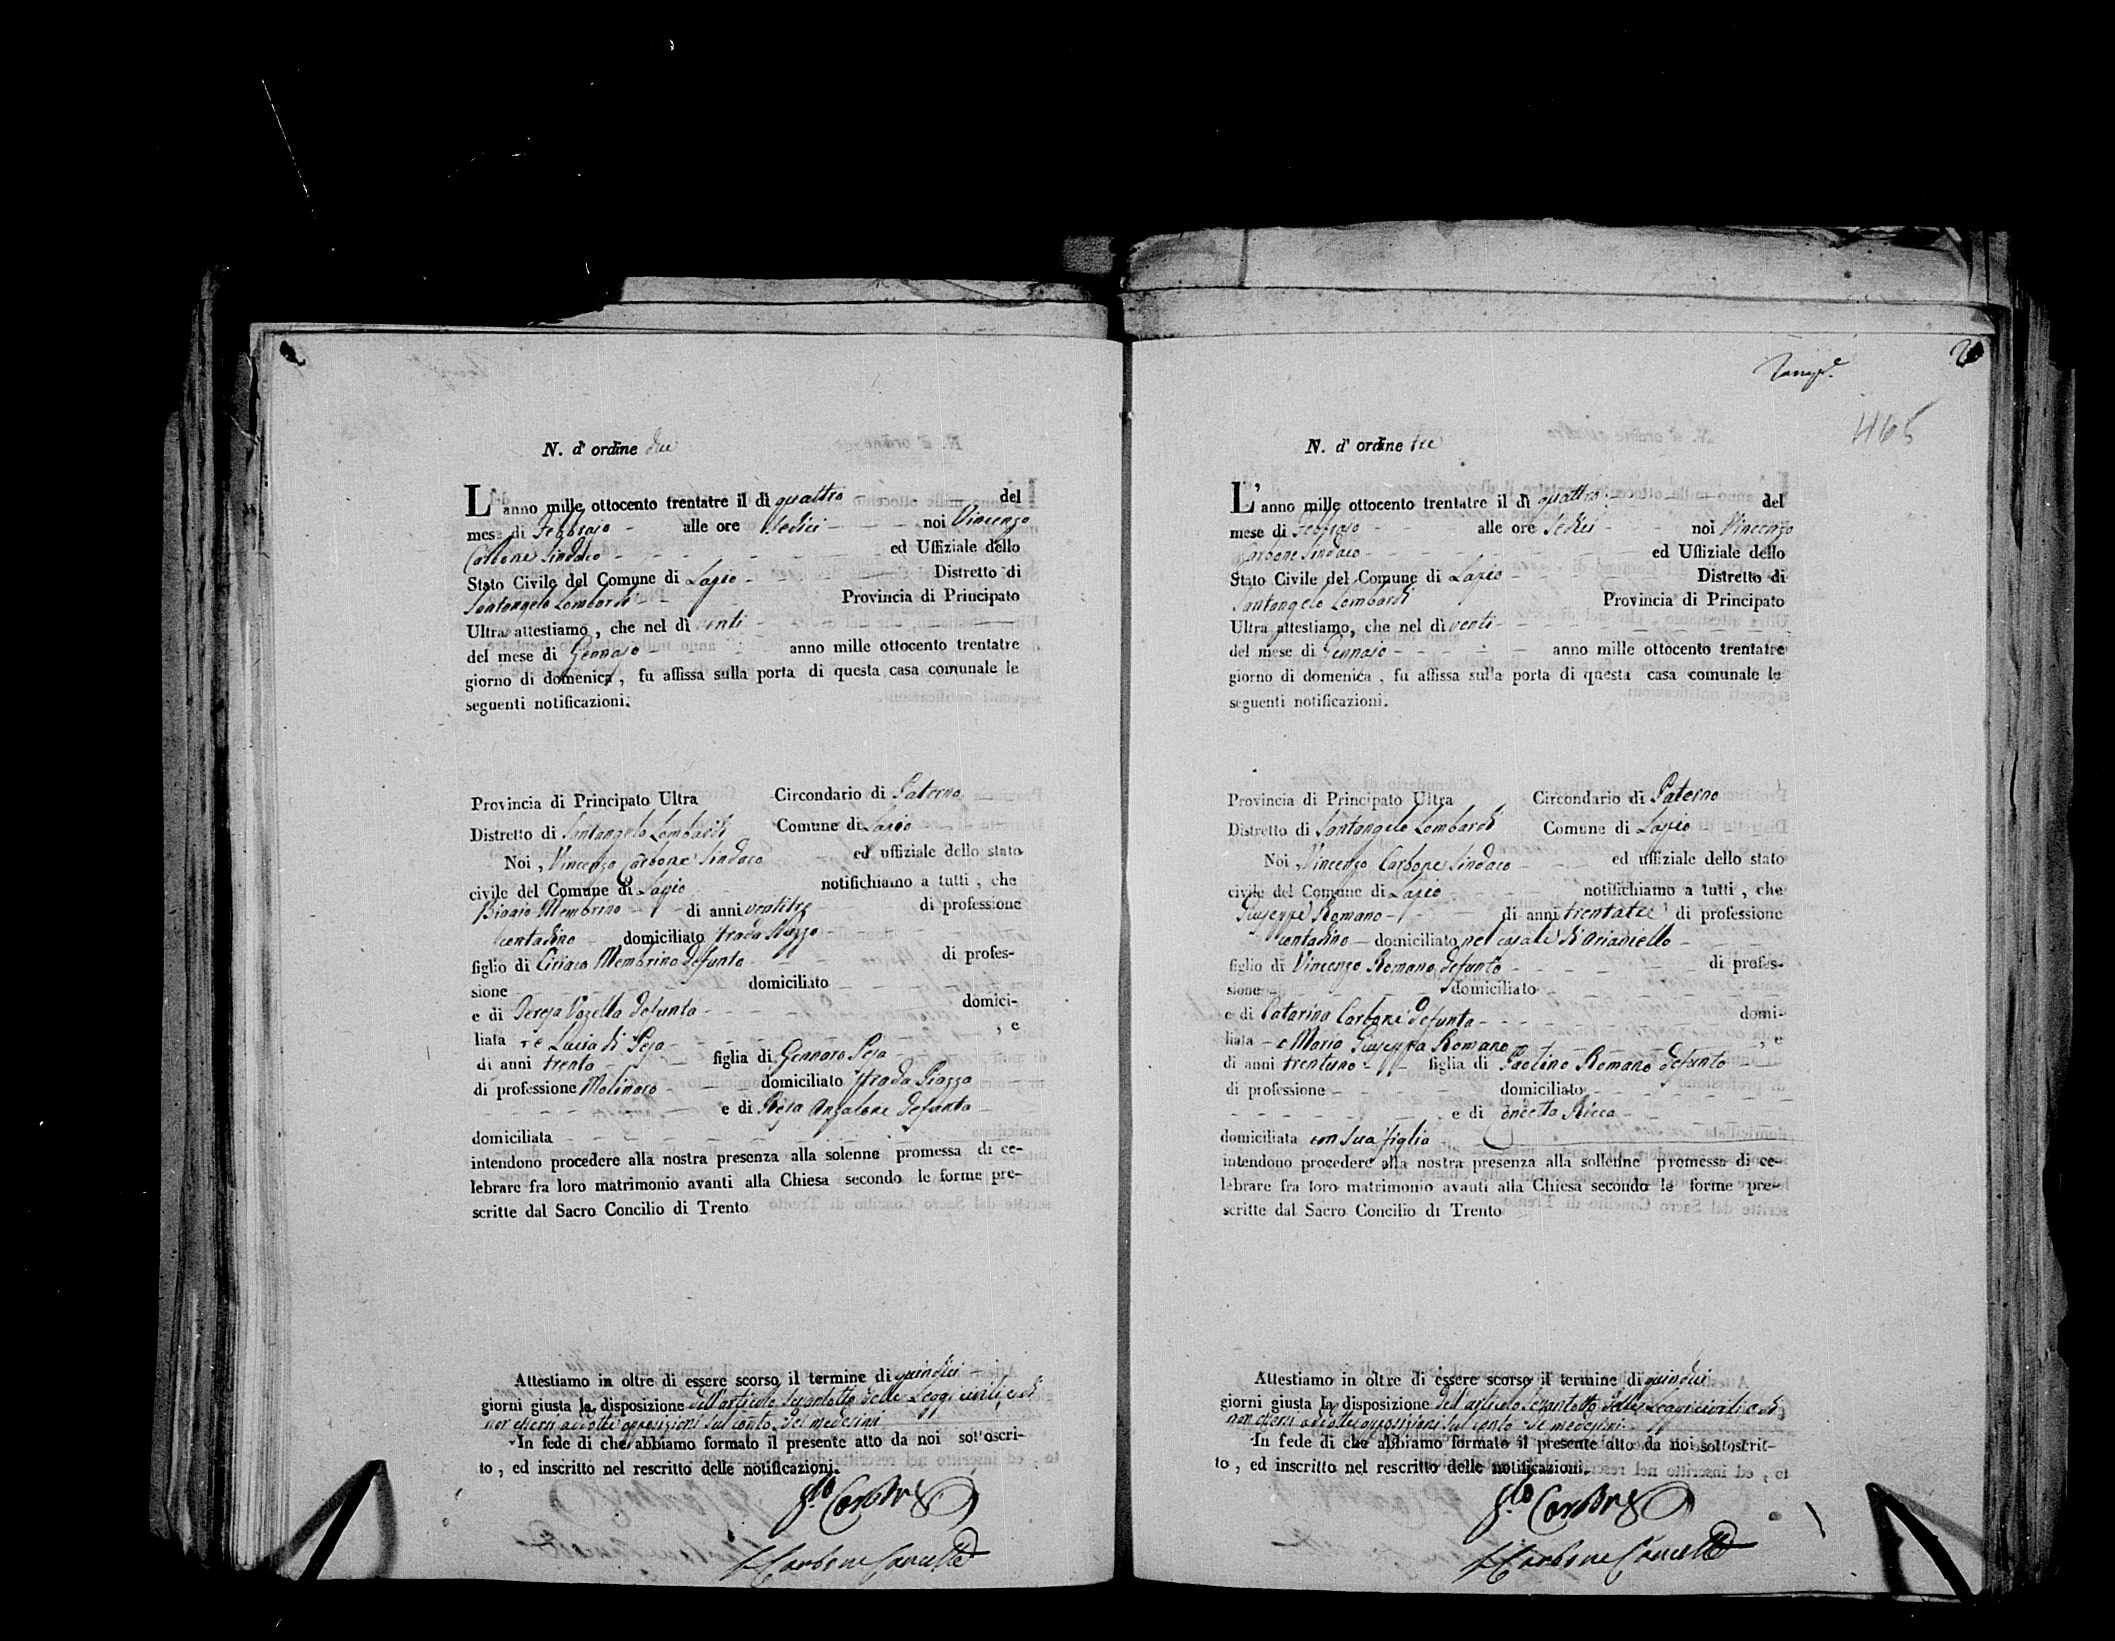 N. d' ordine due
L' anno mille ottocento trentatre il dì quattro del
mese di Febbrajo alle ore sedici noi Vincenzo
Carbone Sindaco ed Uffiziale dello
Stato Civile del Comune di Lapio Distretto di
Santangelo Lombardi Provincia di Principato
Ultra attestiamo, che nel dì venti
del mese di Gennajo anno mille ottocento trentatre
giorno di domenica, fu affissa sulla porta di questa casa comunale le
seguenti notificazioni.
Provincia di Principato Ultra Circondario di Paterno
Distretto di Santangelo Lombardi Comune di Lapio
Noi, Vincenzo Carbone Sindaco ed uffiziale dello stato
civile del Comune di Lapio notifichiamo a tutti, che
Biagio Membrino di anni ventitre di professione
contadino domiciliato strada
figlio di Ciriaco Membrino defunto di profes-
sione domiciliato
e di Teresa defunta domici-
liata e Lucia di Pesa, e
di anni trenta figlia di Gennaro Pesa
di professione Molinaro domiciliato strada Piazza
e di Rosa Anzalone defunta
domiciliata
intendono procedere alla nostra presenza alla solenne promessa di ce-
lebrare fra loro matrimonio avanti alla Chiesa secondo le forme pre-
scritte dal Sacro Concilio di Trento
Attestiamo in oltre di essere scorso il termine di quindici
giorni giusta la disposizione dell'articolo sessantotto delle Leggi civili, e di
non esserci accolte opposizioni sul conto de' medesimi
In fede di che abbiamo formato il presente atto da noi sottoscri-
to, ed inscritto nel rescritto delle notificazioni.
Carbone
Carbone
2
465
N. d' ordine tre
L' anno mille ottocento trentatre il dì quattro del
mese di Febbrajo alle ore sedici noi Vincenzo
Carbone Sindaco ed Uffiziale dello
Stato Civile del Comune di Lapio Distretto di
Santangelo Lombardi Provincia di Principato
Ultra attestiamo, che nel dì venti
del mese di Gennajo anno mille ottocento trentatre
giorno di domenica, fu affissa sulla porta di questa casa comunale le
seguenti notificazioni.
Provincia di Principato Ultra Circondario di Paterno
Distretto di Santangelo Lombardi Comune di Lapio
Noi, Vincenzo Carbone Sindaco ed uffiziale dello stato
civile del Comune di Lapio notifichiamo a tutti, che
Giuseppe Romano di anni trentatre di professione
contadino domiciliato nel casale di Arianiello
figlio di Vincenzo Romano defunto di profes-
sione domiciliato
e di Catarina Carbone defunta domi-
liata e Maria Giuseppa Romano, e
di anni trentuno figlia di Paolino Romano defunto
di professione domiciliato
e di Ricca
domiciliata con sua figlia
intendono procedere alla nostra presenza alla sollenne promessa di ce-
lebrare fra loro matrimonio avanti alla Chiesa secondo le forme pre-
scritte dal Sacro Concilio di Trento
Attestiamo in oltre di essere scorso il termine di quindici
giorni giusta la disposizione dell'articolo sessantotto delle Leggi civili e di
non esserci accolte opposizioni sul conto de' medesimi
In fede di che abbiamo formato il presente atto da noi sottoscrit-
to, ed inscritto nel rescritto delle notificazioni.
Carbone
Carbone